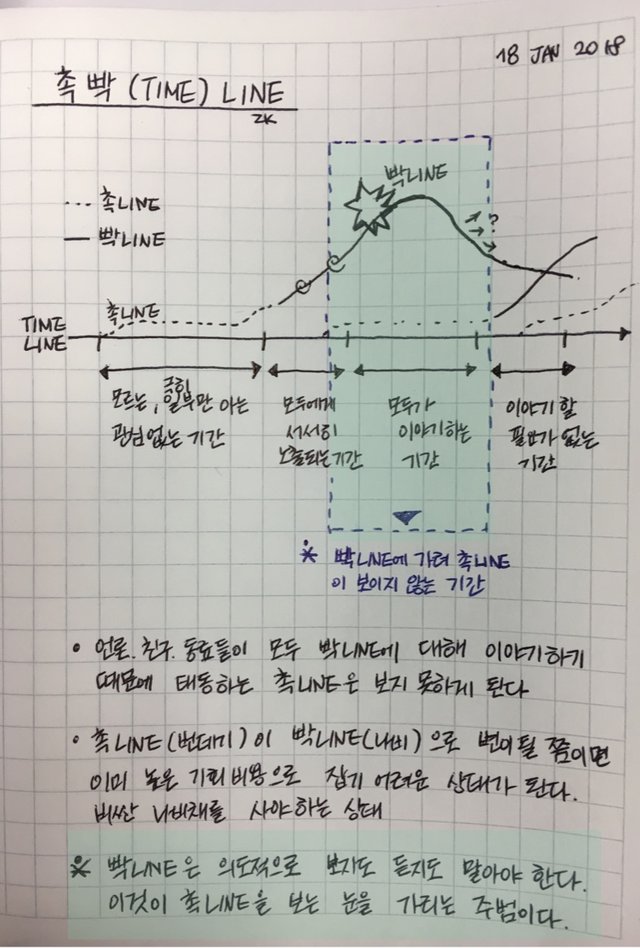 18 JAN 2018
촉빡 (TIME) LINE
ZK
촉LINE
빡LINE
빡LINE
?
촉LINE
TIME
LINE
모르는, 극히 일부만 아는
관심없는 기간
모두에게
서서히
노출되는 기간
모두가
이야기하는
기간
이야기 할
필요가 없는
기간
※ 빡LINE에 가려 촉LINE
이 보이지 않는 기간
• 언론. 친구. 동료들이 모두 빡LINE에 대해 이야기하기
때문에 태동하는 촉LINE은 보지 못하게 된다
• 촉LINE(번데기)이 빡LINE(나비)으로 변이될 쯤이면
이미 높은 기회비용으로 잡기 어려운 상태가 된다.
비싼 나비채를 사야하는 상태
※ 빡LINE은 의도적으로 보지도 듣지도 말아야 한다.
이것이 촉LINE을 보는 눈을 가리는 주범이다.